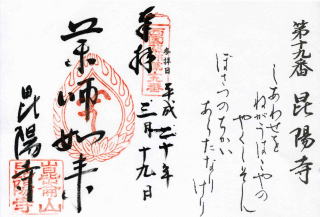 第十九番 昆陽寺
しあわせを
ねがうはこやの
やくしそん
ぼさつのちかい
あらたなりけり
奉拝
参拝日
平成二十年
三月十九日
薬師如来
昆陽寺
崑崙山
昆陽寺